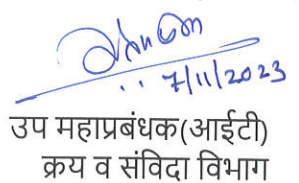 7/11/2023
उप महाप्रबंधक(आईटी)
क्रय व संविदा विभाग